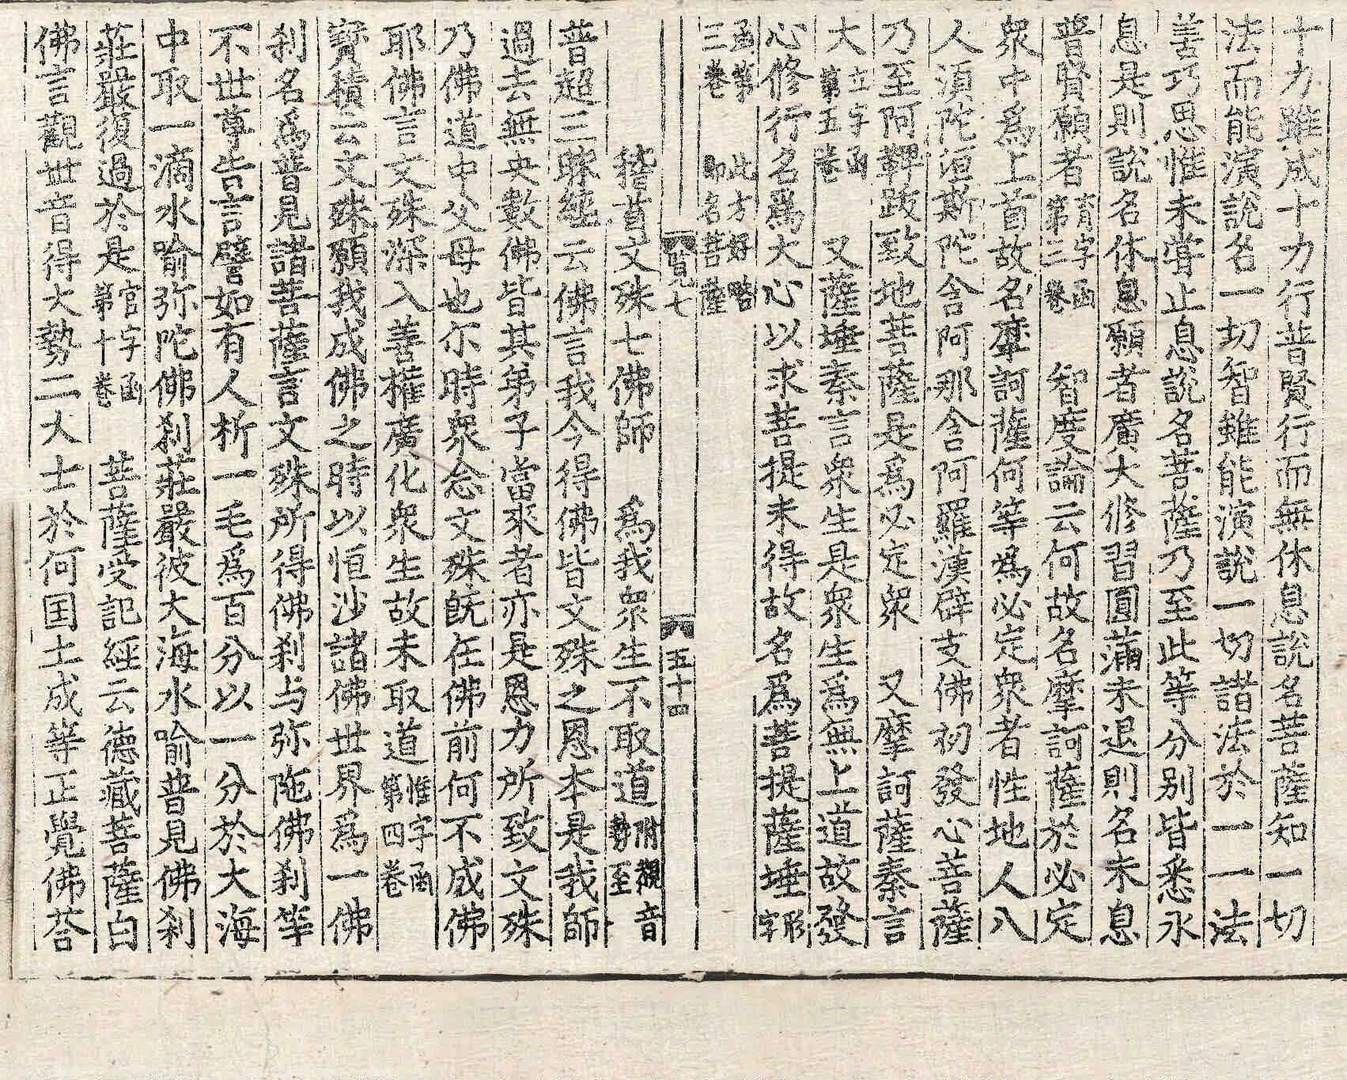 十力雖成十力行普賢行而無休息說名菩薩知一切
法而能演說名一切智雖能演說一切諸法於一一法
善巧思惟未甞止息說名菩薩乃至此等分別皆悉永
息是則說名休息願者廣大修習圓滿未退則名未息
普賢願者育字函第三卷 智度論云何故名摩訶薩於必定
衆中爲上首故名摩訶薩何等爲必定衆者性地人八
人須陀洹斯陀含阿那含阿羅漢辟支佛初發心菩薩
乃至阿鞞跋致地菩薩是爲必定衆 又摩訶薩秦言
大立字函第五卷 又薩埵秦言衆生是衆生爲無上道故發
心修行名爲大心以求菩提未得故名爲菩提薩埵形字
函第三卷 此方好略即名菩薩
賢七 五十四
稽首文殊七佛師 爲我衆生不取道附觀音勢至
普超三昧經云佛言我今得佛皆文殊之恩本是我師
過去無央數佛皆其弟子當來者亦是恩力所致文殊
乃佛道中父母也尒時衆念文殊旣在佛前何不成佛
耶佛言文殊深入善權廣化衆生故未取道惟字函第四卷
寶積云文殊願我成佛之時以恒沙諸佛世界爲一佛
刹名爲普見諸菩薩言文殊所得佛刹与弥陁佛刹等
不世尊告言譬如有人析一毛爲百分以一分於大海
中取一滴水喻弥陀佛刹莊嚴彼大海水喻普見佛刹
莊嚴復過於是官字函第十卷 菩薩受記經云德藏菩薩白
佛言觀世音得大勢二大士於何国土成等正覺佛荅